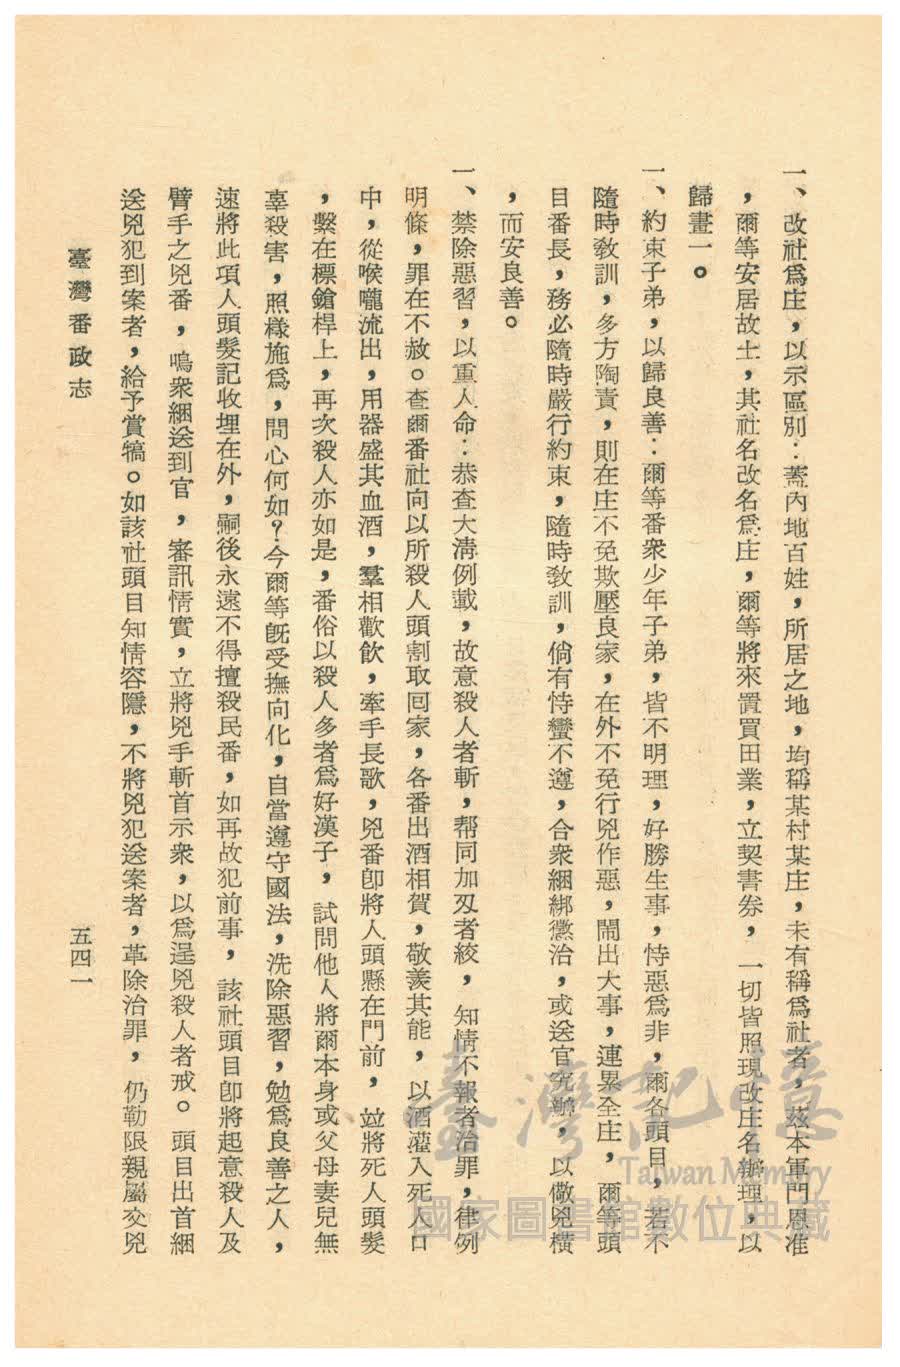 一、改社爲庄，以示區別：蓋內地百姓，所居之地，均稱某村某庄，未有稱爲社者，茲本軍門恩准
，爾等安居故土，其社名改名爲庄，爾等將來置買田業，立契書券，一切皆照現改庄名辦理，以
歸畫一。
一、約束子弟，以歸良善：爾等番衆少年子弟，皆不明理，好勝生事，恃惡爲非，爾各頭目，若不
隨時教訓，多方陶責，則在庄不免欺壓良家，在外不免行兇作惡，鬧出大事，連累全庄，爾等頭
目番長，務必隨時嚴行約束，隨時教訓，倘有恃蠻不遵，合衆綑綁懲治，或送官究辦，以儆兇橫
，而安良善。
一、禁除惡習，以重人命：恭查大淸例載，故意殺人者斬，帮同加刄者絞，知情不報者治罪，律例
明條，罪在不赦。查爾番社向以所殺人頭割取回家，各番出酒相賀，敬羨其能，以酒灌入死人口
中，從喉嚨流出，用器盛其血酒，羣相歡飲，牽手長歌，兇番卽將人頭懸在門前，並將死人頭髮
，繫在標鎗桿上，再次殺人亦如是，番俗以殺人多者爲好漢子，試問他人將爾本身或父母妻兒無
辜殺害，照樣施爲，問心何如？今爾等旣受撫向化，自當遵守國法，洗除惡習，勉爲良善之人，
速將此項人頭髮記收埋在外，嗣後永遠不得擅殺民番，如再故犯前事，該社頭目卽將起意殺人及
臂手之兇番，鳴衆綑送到官，審訊情實，立將兇手斬首示衆，以爲逞兇殺人者戒。頭目出首綑
送兇犯到案者，給予賞犒。如該社頭目知情容隱，不將兇犯送案者，革除治罪，仍勒限親屬交兇
臺灣番政志
五四一
臺灣記憶
Taiwan Memory
國家圖書館數位典藏